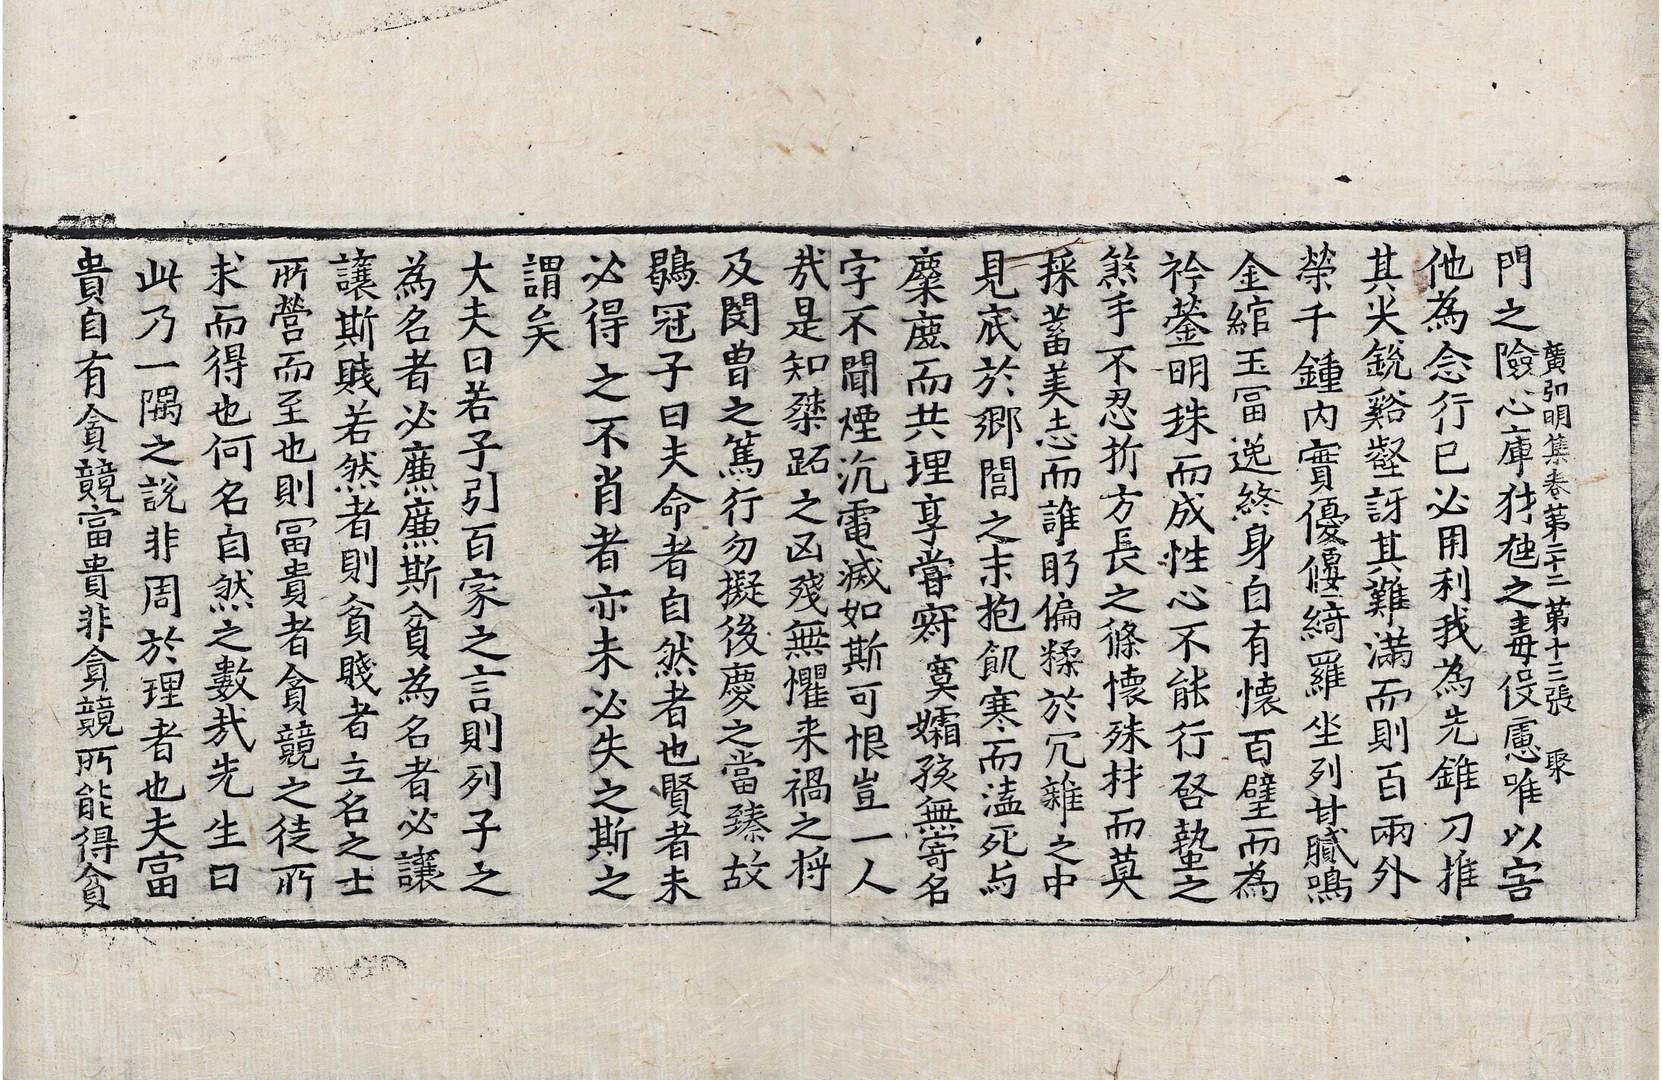 廣弘明集卷第二十二 第十三張 聚
門之險心庫豺虺之毒役慮唯以害
他為念行已必用利我為先錐刀推
其尖銳谿壑訝其難滿而則百兩外
榮千鍾內實優優綺羅坐列甘膩鳴
金綰玉冨逸終身自有懷百璧而為
衿鎣明珠而成性心不能行啓蟄之
煞手不忍折方長之條懷殊材而莫
採蓄美志而誰眄偏糅於冗雜之中
見底於鄉閭之末抱飢寒而溘死与
麋鹿而共理享甞窮寞孀孩無寄名
字不聞煙沉電滅如斯可恨豈一人
㢤是知桀跖之凶殘無懼来禍之將
及閔曾之篤行勿擬後慶之當臻故
鶡冠子曰夫命者自然者也賢者未
必得之不肖者亦未必失之斯之
謂矣
大夫曰若子引百家之言則列子之
為名者必廉廉斯貧為名者必讓
讓斯賤若然者則貧賤者立名之士
所營而至也則冨貴者貪競之徒所
求而得也何名自然之數㢤先生曰
此乃一隅之說非周於理者也夫富
貴自有貪競富貴非貪競所能得貧